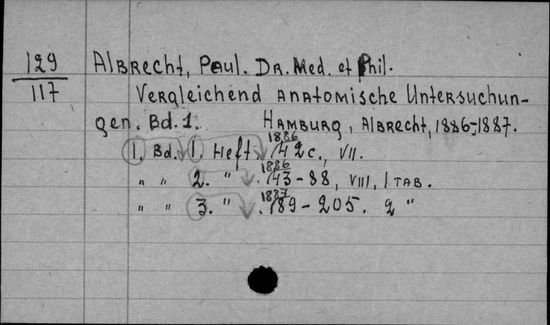 129 Albrecht, Paul. Dr. Med. et Phil.
117 Vergleichend anatomische Untersuchun-
gen. Bd. 1. Hamburg, Albrecht, 1886-1887.
1. Bd. 1. Heft. 1886 42 c., VII.
" " 2. " 1886 43-88, VIII, 1 Tab.
" " 3. " 1887 89-205. 2 "